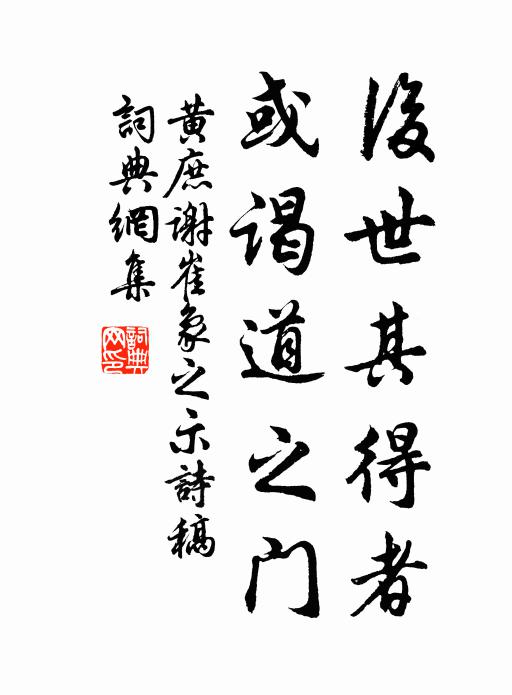 後世其得者
或谒道之门
黄庶謝崔象之示詩稿
詞典網集
詞典網印